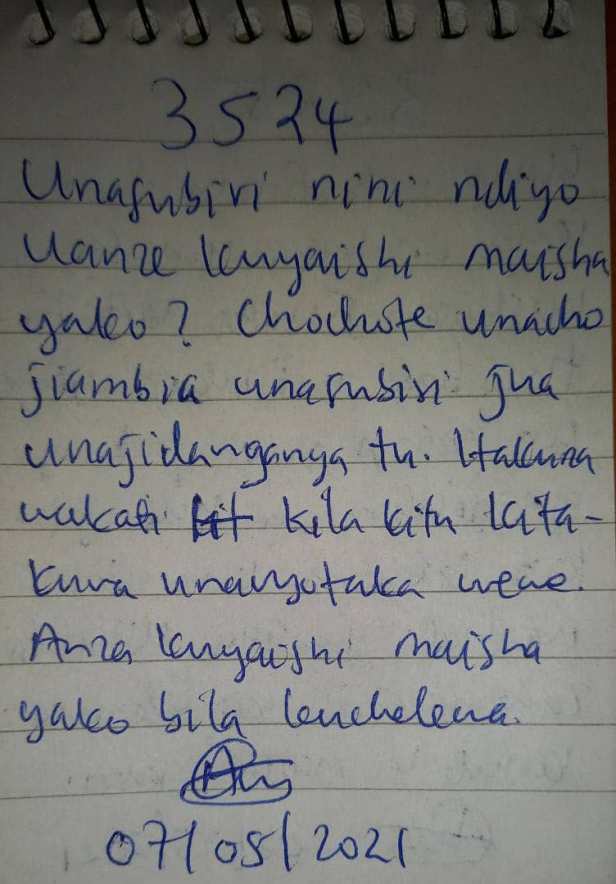 3524
Unasubiri nini ndiyo
Uanze kuyaishi maisha
yako? Chochote unacho
jiambia unasubiri jua
unajidanganya tu. Hakuna
wakati kila kitu kita-
kuwa unavyotaka wewe.
Anza kuyaishi maisha
yako bila kuchelewa.
07/05/2021